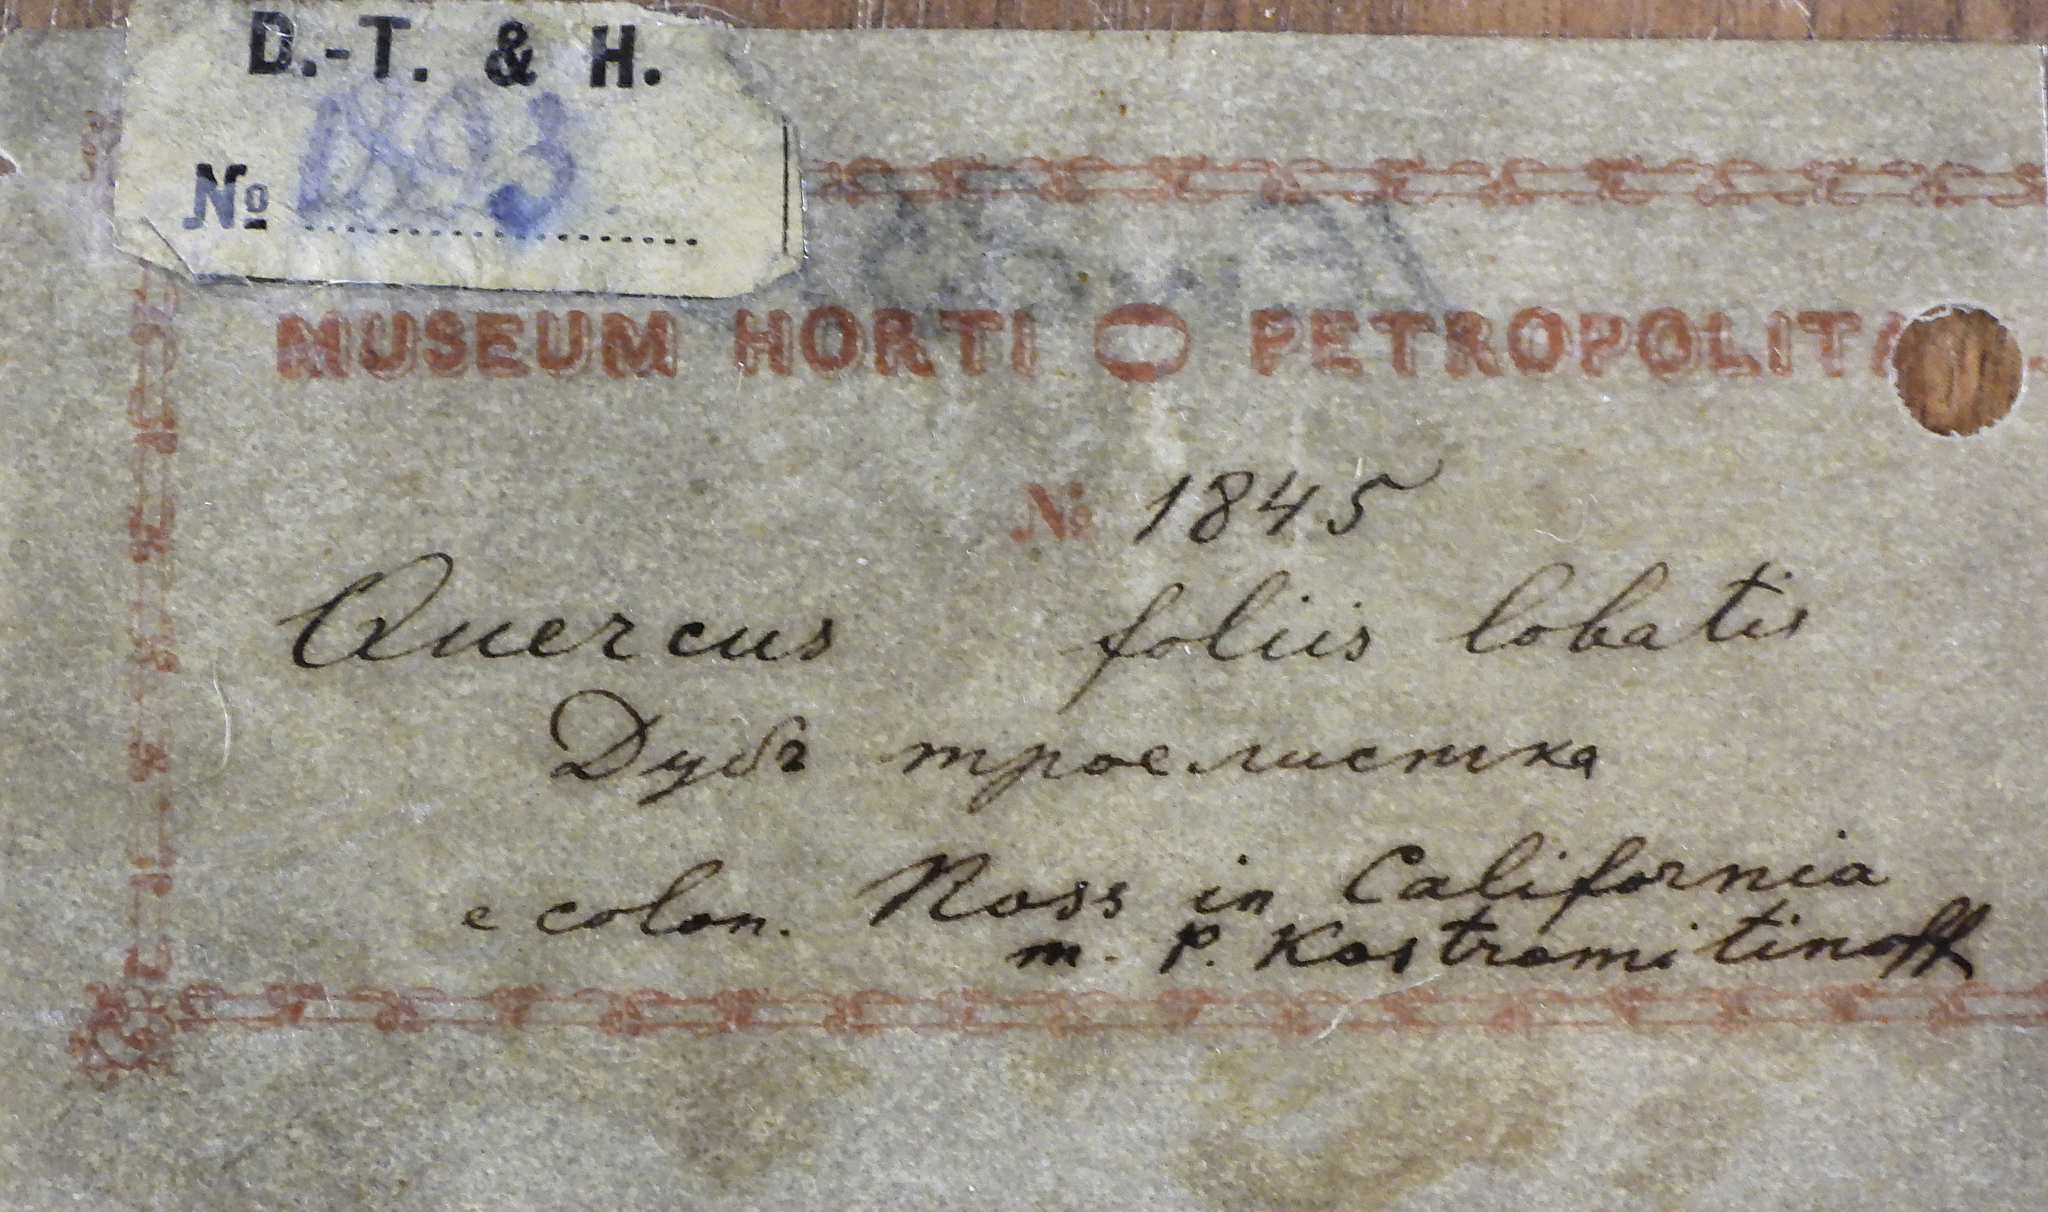 D.-T. & H.
№ 1893
MUSEUM HORTI PETROPOLITA
№ 1845
Quercus foliis lobatis
Дубъ троелистка
e colon. Ross in California
m. P. Kostromitinoff